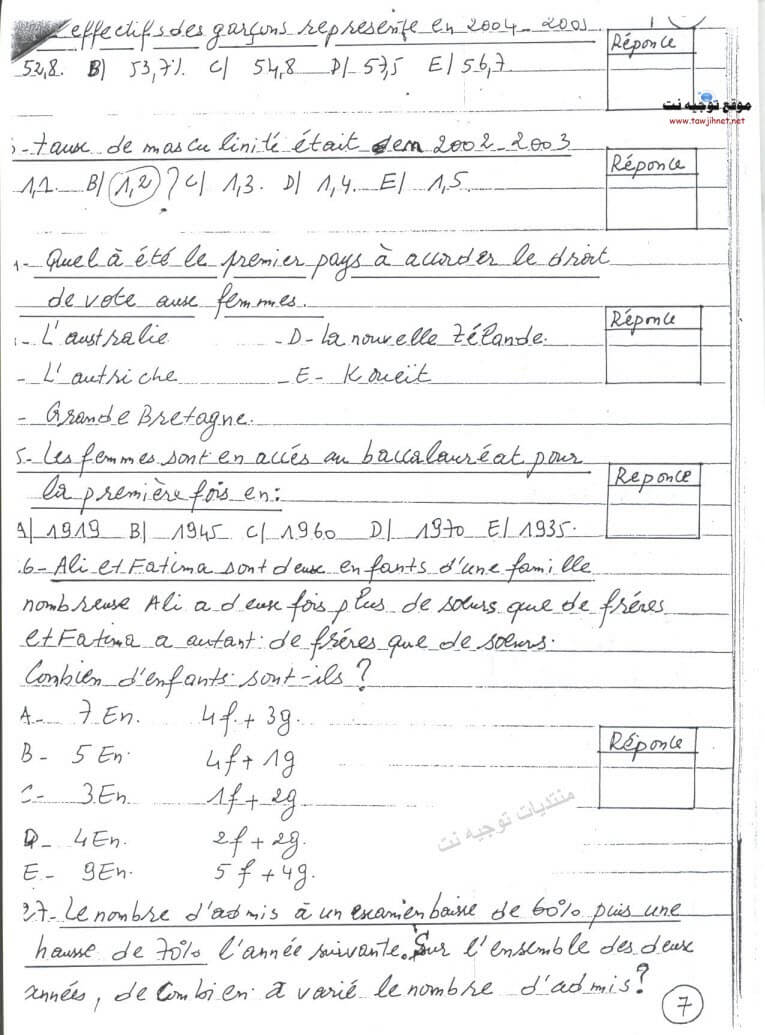 effectifs des garçons représente en 2004-2005
Réponce
52,8. B) 53,7% C) 54,8 D) 57,5 E) 56,7
موقع توجيه نت
www.tawjihnet.net
-taux de masculinité était en 2002-2003
Réponce
1,1. B) 1,2 ? C) 1,3. D) 1,4. E) 1,5.
- Quel à été le premier pays à accorder le droit
de vote aux femmes.
Réponce
- L'australie - D- La nouvelle Zélande.
- L'autriche - E- Koueït
- Grande Bretagne.
5- Les femmes sont en accés au baccalauréat pour
la première fois en:
Réponce
A) 1919 B) 1945 C) 1960 D) 1970 E) 1935.
6- Ali et Fatima sont deux enfants d'une famille
nombreuse Ali a deux fois plus de sœurs que de fréres
et Fatima a autant de fréres que de sœurs.
Combien d'enfants sont-ils ?
A- 7 En. 4f + 3g.
Réponce
B- 5 En. 4f + 1g
C- 3En. 1f + 2g
منتديات توجيه نت
D- 4En. 2f + 2g.
E- 9En. 5f + 4g.
27- Le nombre d'admis à un examien baisse de 60% puis une
hausse de 70% l'année suivante. Sur l'ensemble des deux
années, de combien a varié le nombre d'admis?
7